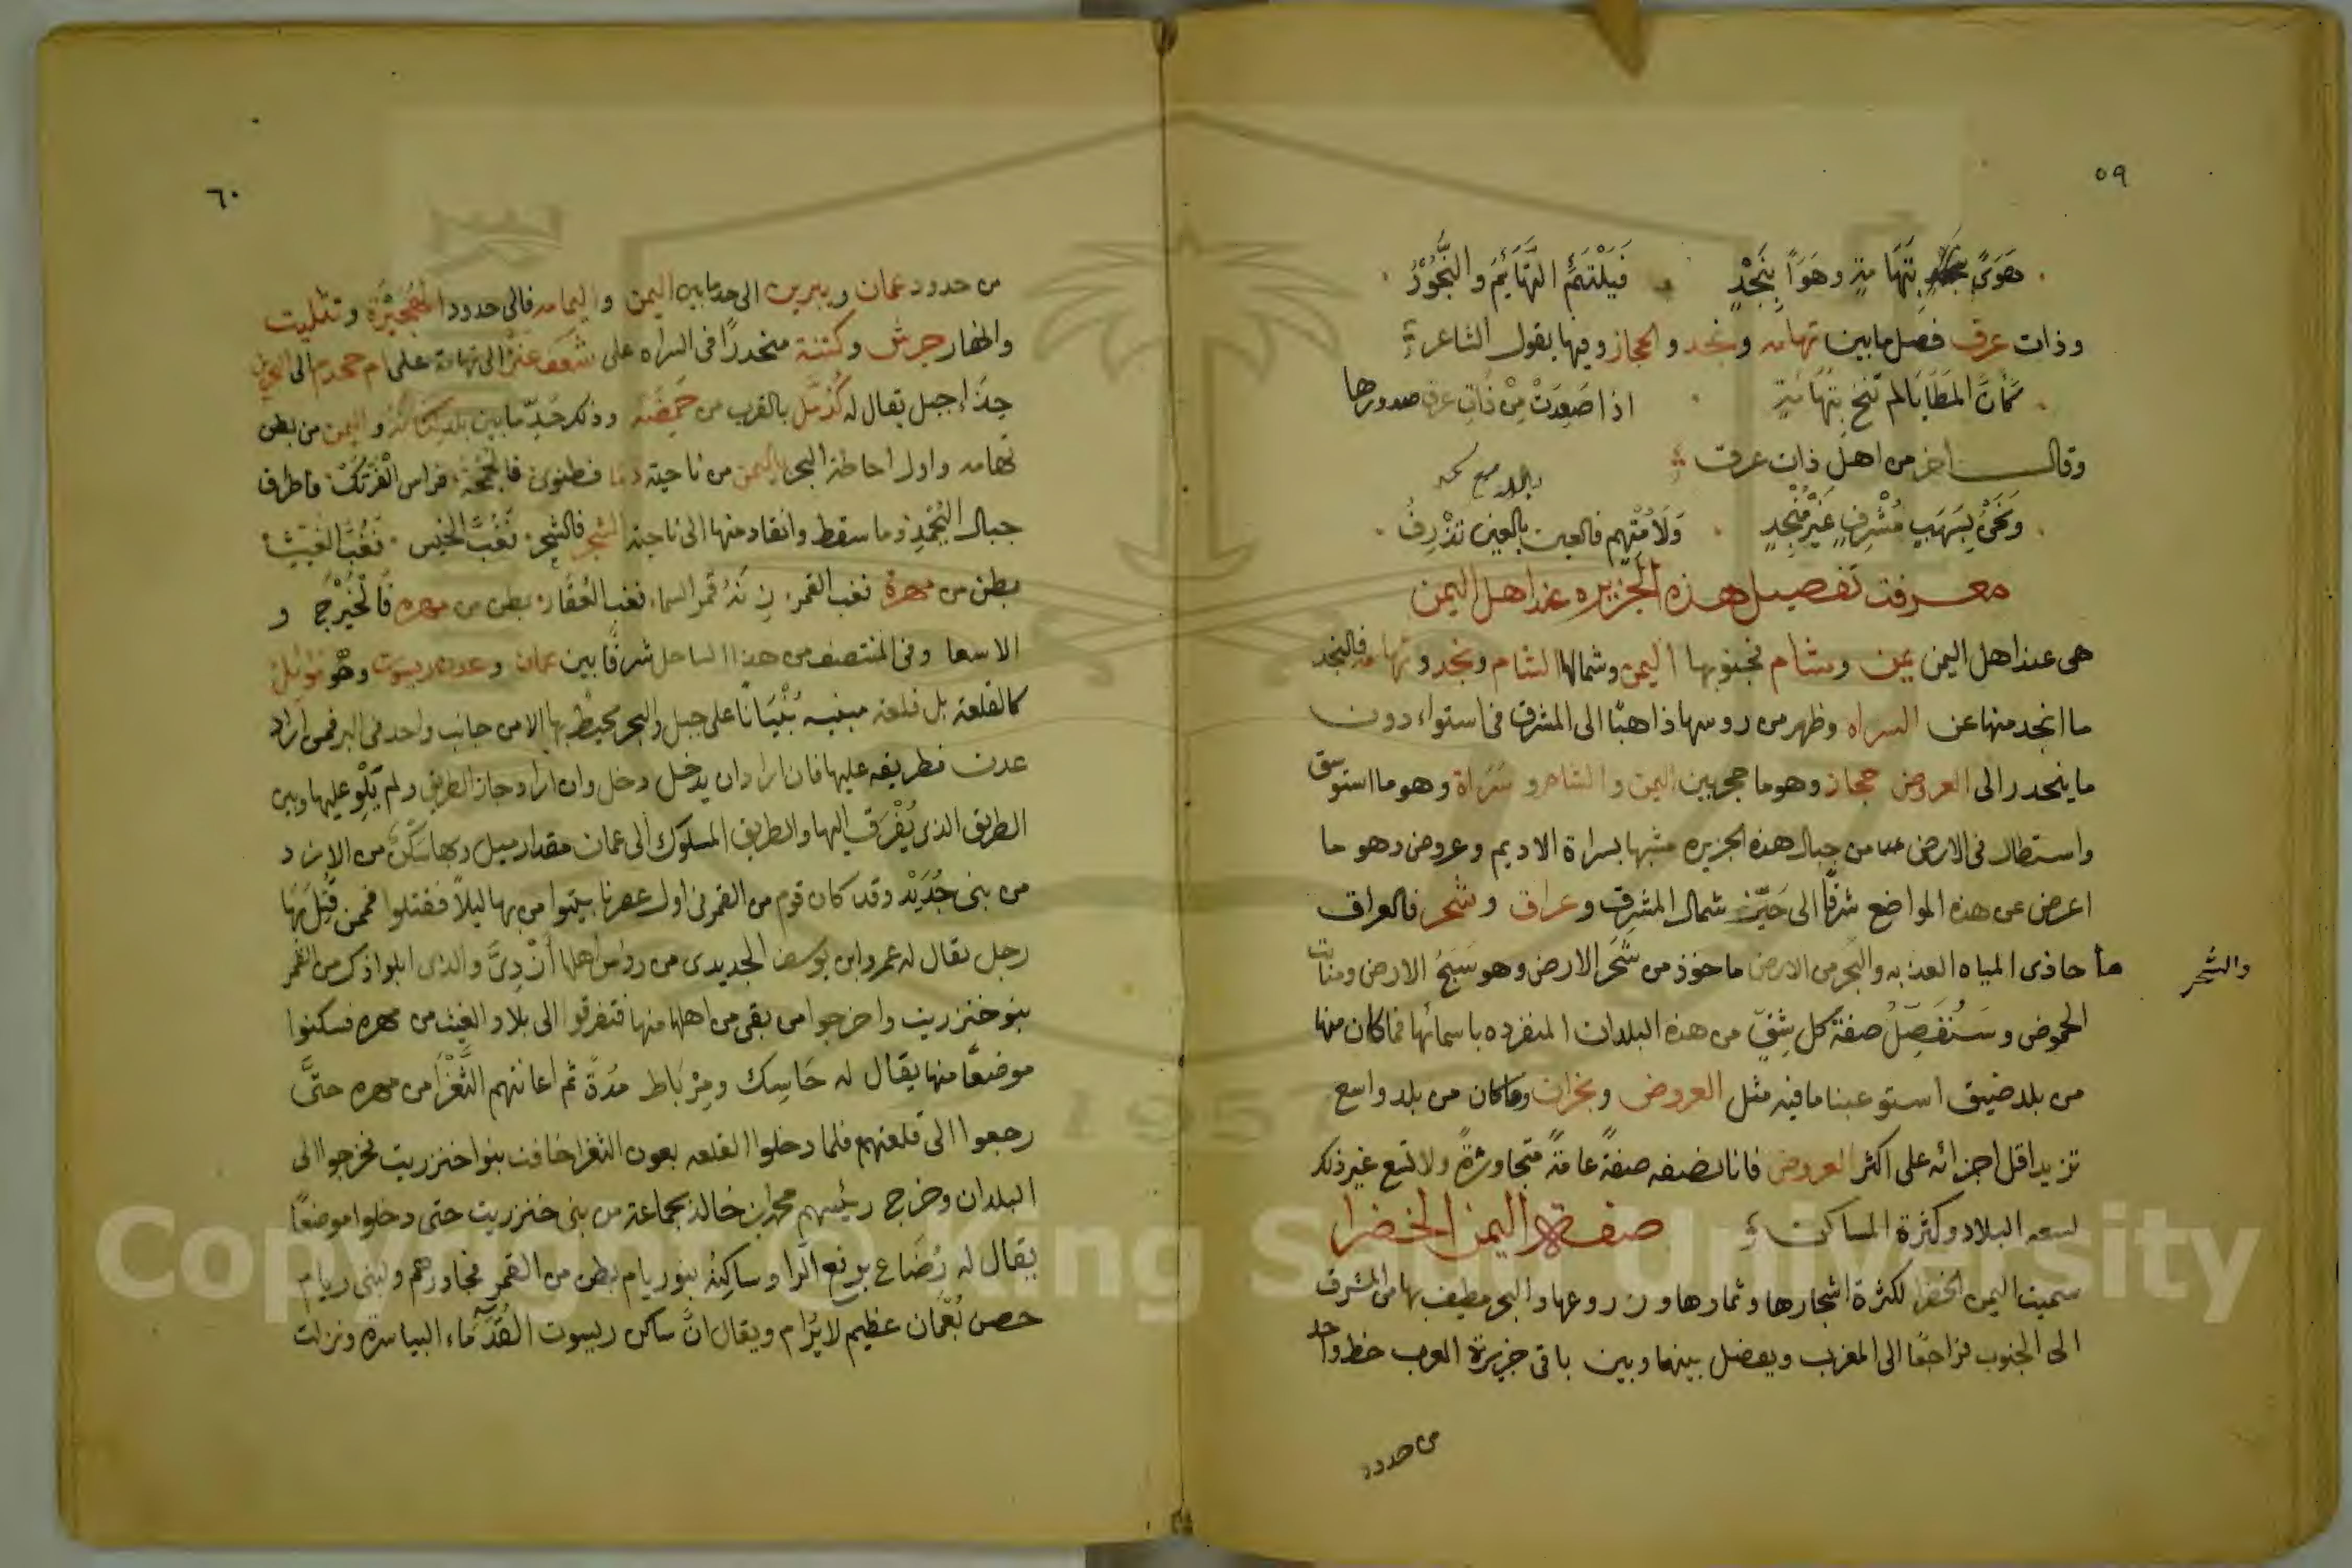 ٥٩
هَوًى بِتَهَامَةٍ وهَوًا بِنَجْدٍ فَيَلْتَئِمُ التَّهَائِمُ والنُّجُوُدُ
وذات عرق فصل ما بين تهامه ونجد والحجاز وفيها يقول الشاعر
كأن المَطَايَا لم تنخ بتهَامَةٍ اذا صَعِدَتْ مِنْ ذَاتِ عرق صدورها
وقال اخر من اهل ذات عرق
ونَحْنُ بِسَهْبٍ مُشْرِفٍ غَيْرِ مُنْجِدٍ وَلَا مُتْهِم فالعين بالعين تَذْرِفُ
معرفة تفصيل هذه الجزيره عند اهل اليمن
هى عند اهل اليمن يمن وشام فجنوبها اليمن وشمالها الشام ونجد وتهامه فالنجد
ما انجد منها عن السراه وظهر من روسها ذاهبًا الى المشرق فى استواء دون
ما ينحدر الى العروض حجاز وهو ما حجز بين اليمن والشام وسَرَاة وهو ما استوسق
واستطال فى الارض من جبال هذه الجزيره مشبها بسراة الاديم وعروض وهو ما
اعرض عن هذه المواضع شرقًا الى حَيّز شمال المشرق وعراق وشحر فالعراق
والشحر
ما حاذى المياه العذبه والبَحر من الارض ماخوذ من شَحَر الارض وهو سَبَخُ الارض ومنابت
الحموض وسَنُفَصِّلُ صفةَ كل شِقّ من هذه البلدان المنفرده باسمائها فما كان منها
من بلد ضيق استوعبنا ما فيه مثل العروض ونجران وما كان من بلد واسع
تزيد اقل اجزائه على اكثر العروض فانا نصفه صفةً عامةً متجاوزةً ولا نتبع غير ذلك
لسعه البلاد وكثرة المساكن صفة اليمن الخضرا
سميت اليمن الخضرا لكثرة اشجارها وثمارها وزروعها والبحر مطيف بها من المشرق
الى الجنوب فراجعًا الى المغرب ويفصل بينها وبين باقى جزيرة العرب خط واحد
من حدود
٦٠
من حدود عمان ويبرين الى حد ما بين اليمن واليمامه فالى حدود الهُجَيْرَة وتثليث
وانهار جرش وكتنة منحدرًا فى السراه على شَعَف عَنْز الى تهامة على ام جحدم الى البحر
حِذَا جبل يقال له كُدُمّل بالقرب من حَمِضَة وذلك حَدّ ما بين بلد كنانة واليمن من بطن
تهامه واول احاطة البحر باليمن من ناحية دما فطنوى فالجُمْحَة فراس الفَرْتَك فاطراف
جبال اليُحْمِد وما سقط وانقاد منها الى ناحية الشحر فالشحر فغُبّ الخيس فغُبّ الغيث
بطن من مهرة فغب القمر زنة قمر السماء فغب العُقَار بطن من مهره فالْخَيْرج و
الاسعا وفى المنتصف من هذا الساحل شرقًا بين عمان وعدن ريسوت وهُو مَوْئِل
كالقلعة بل قلعة مبنيه بُنْيَانًا على جبل والبحر يحيط بها الا من جانب واحد فى البر فمن اراد
عدن فطريقه عليها فان اراد ان يدخل دخل وان اراد جاز الطريق ولم يَلْوِ عليها وبين
الطريق الذى يُفْرَق اليها والطريق المسلوك الى عمان مقدار ميل وبها سَكَنٌ من الازد
من بنى جُدَيْد وقد كان قوم من القمر فى اول عصرنا بيتوا من بها ليلًا فقتلوا فممن قُتِلَ بها
رجل يقال له عمرو ابن يوسف الجديدى من روس اهلها أَزْدِىّ والذى ابلوا ذكر من القمر
بنو خنزريت واخرجوا من بقى من اهلها منها فتفرقوا الى بلاد الغيث من مهره فسكنوا
موضعًا منها يقال له حَاسِك ومِرْبَاط مُدَةً ثم اعانتهم الثَّغْرَا من مهره حتَّى
رجعوا الى قلعتهم فلما دخلوا القلعه بعون الثغرا خافت بنوا خنزريت فخرجوا الى
البلدان وخرج رئيسهم محمد ابن خالد بجماعة من بنى خنزريت حتى دخلوا موضعًا
يقال له رُضَاع برفع الرا وساكِنهُ بنو ريام بطن من القمر فجاورهم ولبنى ريام
حصن بعُمان عظيم لا يُرَام ويقال انّ ساكن ريسوت القُدَمَاء البياسرة ونزلت
Copyright © King Saud University
1957